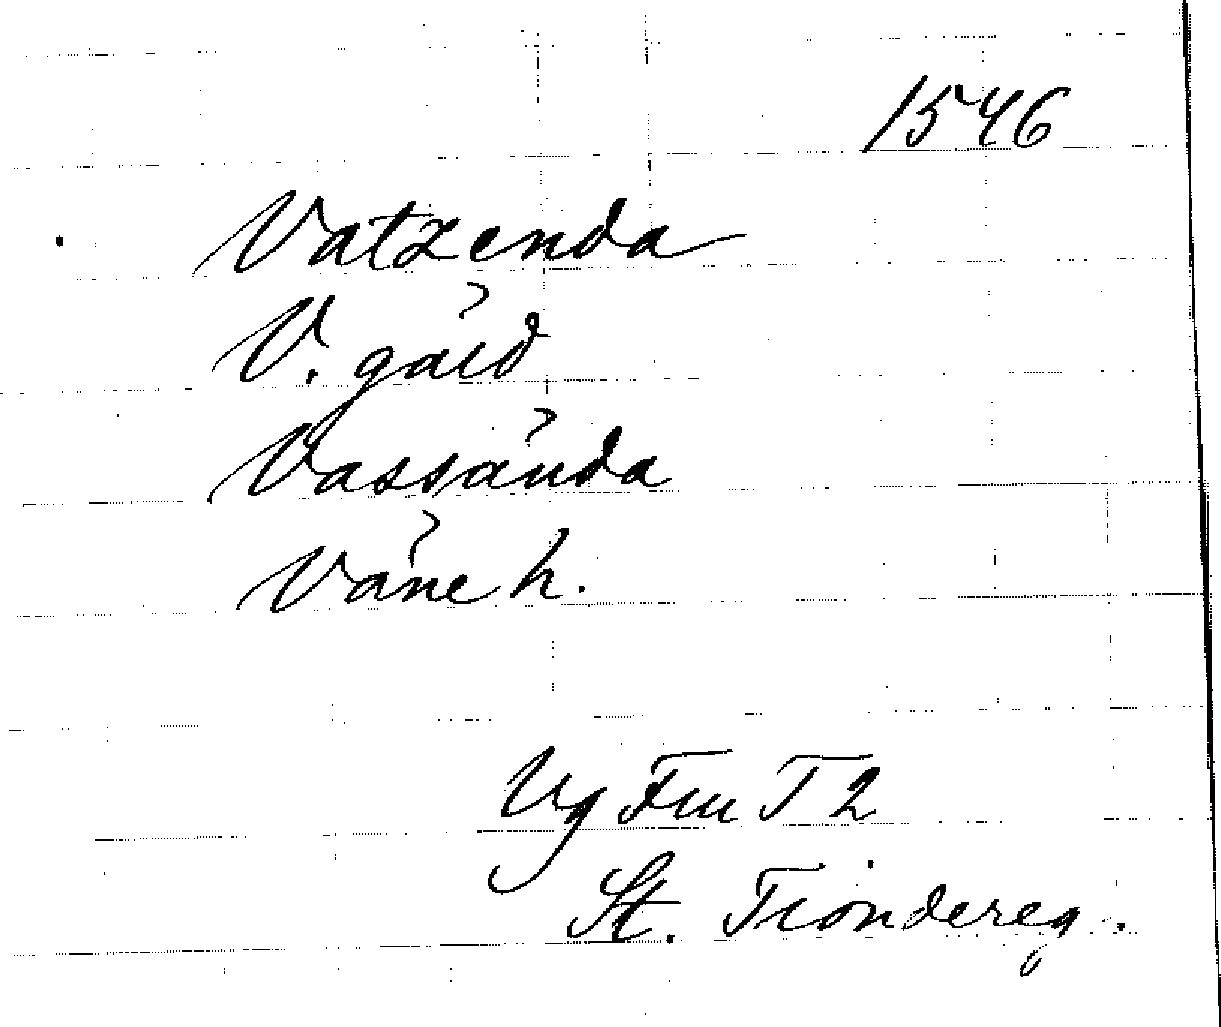 1546
Vatzenda
V. gård
Vassända
Väne h.
Vg Fru T 2
St. Tiondereg.